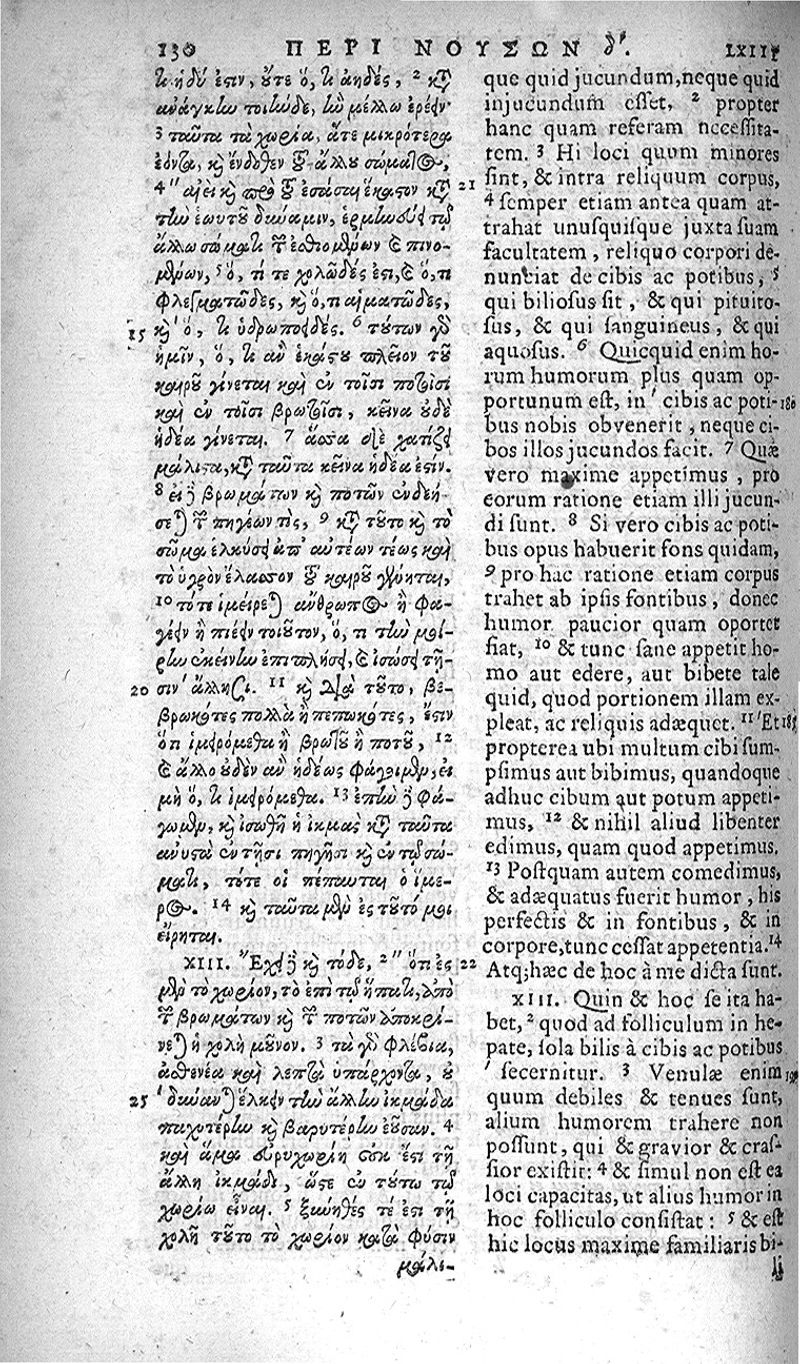 130 ΠΕΡΙ ΝΟΥΣΩΝ δ'. LXIII
τι ἡδύ ἐστιν, οὔτε ὅ, τι ἀηδές, ² κατ'
ἀνάγκην τοιήνδε, ἣν μέλλω ἐρέειν·
³ ταῦτα τὰ χωρία, ἅτε μικρότερα
ἐόντα, καὶ ἔνδοθεν τοῦ ἄλλου σώματος,
⁴ " αἰεὶ καὶ πρὸ τοῦ ἐσπάσαι ἕκαστον κατὰ
τὴν ἑωυτοῦ δύναμιν, ἑρμηνεύει τῷ
ἄλλῳ σώματι τῶν ἐσθιομένων καὶ πινο-
μένων, ⁵ ὅ, τί τε χολῶδές ἐστι, καὶ ὅ, τι
φλεγματῶδες, καὶ ὅ, τι αἱματῶδες,
15 καὶ ' ὅ, τι ὑδρωποειδές. ⁶ τούτων γὰρ
ἡμῖν, ὅ, τι ἂν ἑκάστου πλεῖον τοῦ
καιροῦ γίνεται καὶ ἐν τοῖσι ποτοῖσι
καὶ ἐν τοῖσι βρωτοῖσι, κεῖνα οὐδὲ
ἡδέα γίνεται. ⁷ ἅσσα δὲ χατίζει
μάλιστα, κατὰ ταῦτα κεῖνα ἡδέα ἐστίν.
⁸ εἰ δὲ βρωμάτων καὶ ποτῶν ἐνδεή-
σεται τῶν πηγέων τις, ⁹ κατὰ τοῦτο καὶ τὸ
σῶμα ἑλκύσει ἀπ' αὐτέων τέως καὶ
τὸ ὑγρὸν ἔλασσον τοῦ καιροῦ γένηται,
¹⁰ τότε ἱμείρεται ἄνθρωπος ἢ φα-
γέειν ἢ πιέειν τοιοῦτον, ὅ, τι τὴν μοί-
ρην ἐκείνην ἐπιπλήσει, καὶ ἰσώσει τῇ-
20 σιν' ἄλλῃσι. ¹¹ καὶ διὰ τοῦτο, βε-
βρωκότες πολλὰ ἢ πεπωκότες, ἔστιν
ὅτι ἱμειρόμεθα ἢ βρωτοῦ ἢ ποτοῦ, ¹²
καὶ ἄλλο οὐδὲν ἂν ἡδέως φάγοιμεν, εἰ
μὴ ὅ, τι ἱμειρόμεθα. ¹³ ἐπὴν δὲ φά-
γωμεν, καὶ ἰσωθῇ ἡ ἰκμὰς κατὰ ταῦτα
ἀνυστὰ ἐν τῇσι πηγῇσι καὶ ἐν τῷ σώ-
ματι, τότε οἱ πέπαυται ὁ ἵμε-
ρος. ¹⁴ καὶ ταῦτα μὲν ἐς τοῦτό μοι
εἴρηται.
XIII. Ἔχει δὲ καὶ τόδε, ² " ὅτι ἐς
μὲν τὸ χωρίον, τὸ ἐπὶ τῷ ἥπατι, ἀπὸ
τῶν βρωμάτων καὶ τῶν ποτῶν ἀποκρί-
νεται ἡ χολὴ μοῦνον. ³ τὰ γὰρ φλέβια,
ἀσθενέα καὶ λεπτὰ ὑπάρχοντα, οὐ
25 ' δύναται ἕλκειν τὴν ἄλλην ἰκμάδα
παχυτέρην καὶ βαρυτέρην ἐοῦσαν. ⁴
καὶ ἅμα εὐρυχωρίη οὐκ ἔστι τῇ
ἄλλῃ ἰκμάδι, ὥστε ἐν τούτῳ τῷ
χωρίῳ εἶναι. ⁵ ξυνηθές τέ ἐστι τῇ
χολῇ τοῦτο τὸ χωρίον κατὰ φύσιν
μάλι-
que quid jucundum, neque quid
injucundum esset, ² propter
hanc quam referam necessita-
tem. ³ Hi loci quum minores
21 sint, & intra reliquum corpus,
⁴ semper etiam antea quam at-
trahat unusquisque juxta suam
facultatem, reliquo corpori de-
nuntiat de cibis ac potibus, ⁵
qui biliosus sit, & qui pituito-
sus, & qui sanguineus, & qui
aquosus. ⁶ Quicquid enim ho-
rum humorum plus quam op-
portunum est, in ' cibis ac poti- 180
bus nobis obvenerit, neque ci-
bos illos jucundos facit. ⁷ Quæ
vero maxime appetimus, pro
eorum ratione etiam illi jucun-
di sunt. ⁸ Si vero cibis ac poti-
bus opus habuerit fons quidam,
⁹ pro hac ratione etiam corpus
trahet ab ipsis fontibus, donec
humor paucior quam oportet
fiat, ¹⁰ & tunc sane appetit ho-
mo aut edere, aut bibere tale
quid, quod portionem illam ex-
pleat, ac reliquis adæquet. ¹¹ ' Et 185
propterea ubi multum cibi sum-
psimus aut bibimus, quandoque
adhuc cibum aut potum appeti-
mus, ¹² & nihil aliud libenter
edimus, quam quod appetimus.
¹³ Postquam autem comedimus,
& adæquatus fuerit humor, his
perfectis & in fontibus, & in
corpore, tunc cessat appetentia. ¹⁴
22 Atq; hæc de hoc à me dicta sunt.
XIII. Quin & hoc se ita ha-
bet, ² quod ad folliculum in he-
pate, sola bilis à cibis ac potibus
' secernitur. ³ Venulæ enim 190
quum debiles & tenues sunt,
alium humorem trahere non
possunt, qui & gravior & cras-
sior existit: ⁴ & simul non est ea
loci capacitas, ut alius humor in
hoc folliculo consistat: ⁵ & est
hic locus maxime familiaris bi-
li